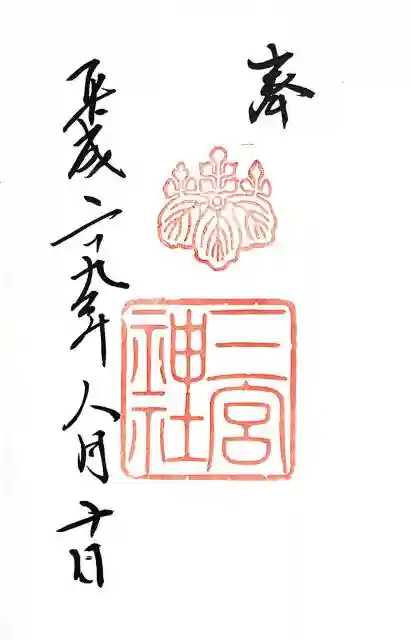 奉
三宮
神社
平成二十九年八月十日